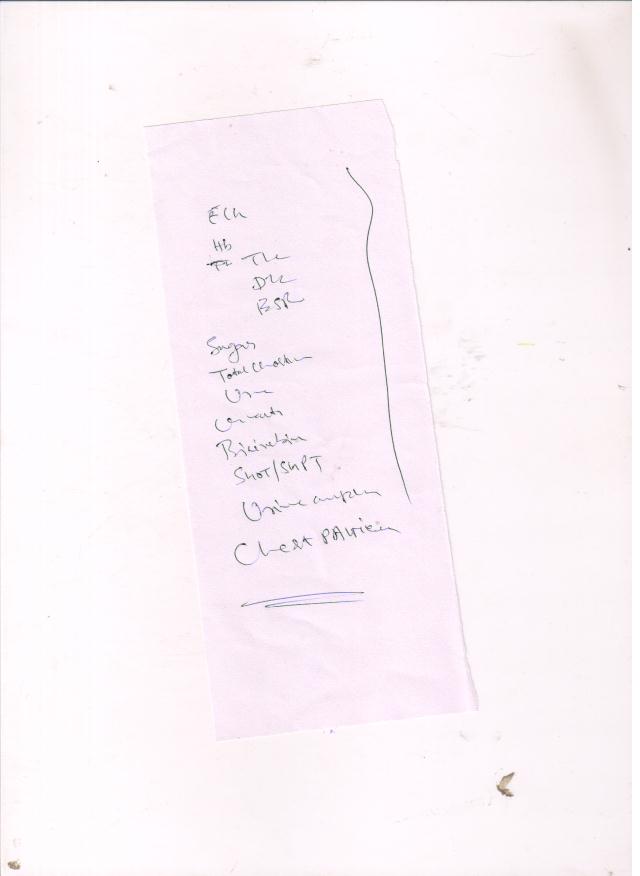 ECG
Hb
TLC
DLC
ESR
Sugar
Total Cholesterol
Urea
Bilirubin
SGOT/SGPT
Urine
Chest PA View